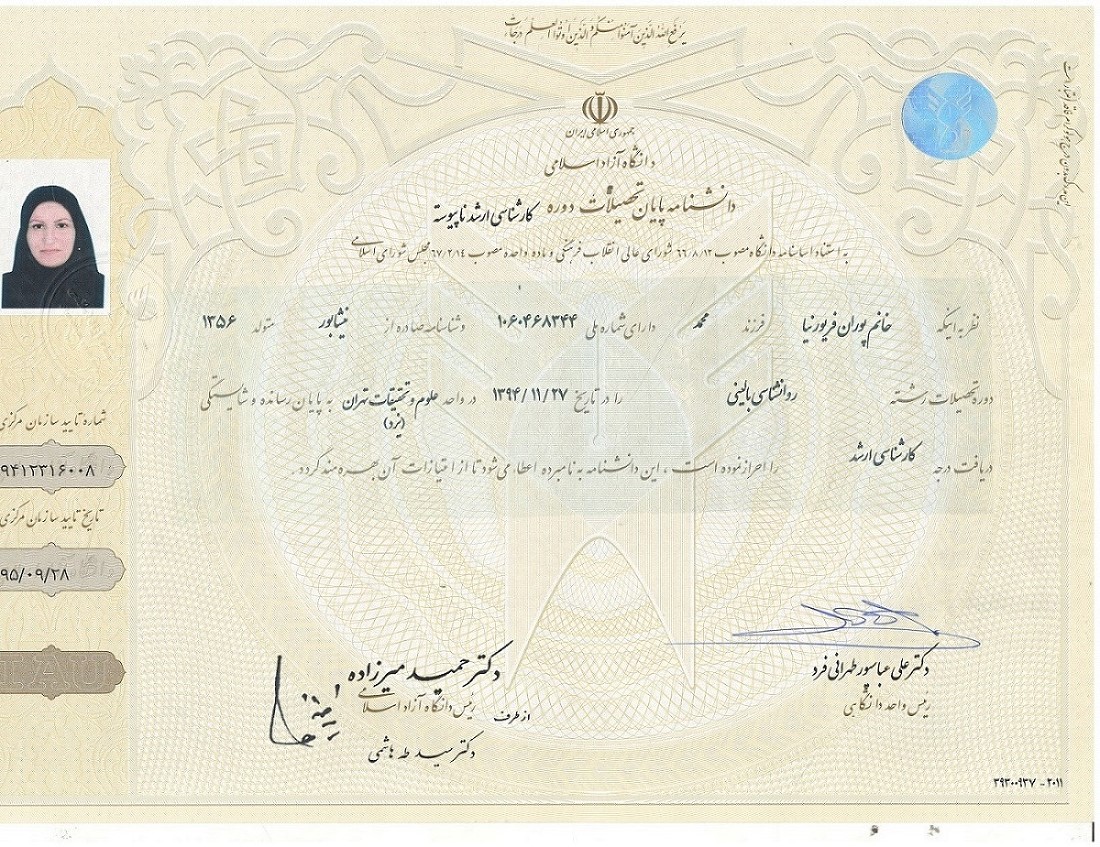 یرفع الله الذین آمنوا منکم و الذین اوتوا العلم درجات
جمهوری اسلامی ایران
دانشگاه آزاد اسلامی
دانشنامه پایان تحصیلات دوره کارشناسی ارشد ناپیوسته
به استناد اساسنامه دانشگاه مصوب ۶۶/۸/۱۲ شورای عالی انقلاب فرهنگی و ماده واحده مصوب ۶۷/۲/۱۴ مجلس شورای اسلامی
نظر به اینکه خانم پوران فریور نیا فرزند محمد دارای شماره ملی ۱۰۶۰۴۶۸۳۴۴ و شناسنامه صادره از نیشابور متولد ۱۳۵۶
دوره تحصیلات رشته روانشناسی بالینی را در تاریخ ۱۳۹۴/۱۱/۲۷ در واحد علوم و تحقیقات تهران به پایان رسانده و شایستگی
(یزد)
دریافت درجه کارشناسی ارشد را احراز نموده است ، این دانشنامه به نامبرده اعطا می شود تا از امتیازات آن بهره مند گردد .
شماره تایید سازمان مرکزی
۹۴۱۲۳۱۶۰۰۸
تاریخ تایید سازمان مرکزی
۹۵/۰۹/۲۸
IAU
دکتر علی عباسپور طهرانی فرد
رئیس واحد دانشگاهی
دکتر حمید میرزاده
رئیس دانشگاه آزاد اسلامی
از طرف
دکتر سید طه هاشمی
۳۹۳۰۰۹۳۷ - ۲۰۱۱